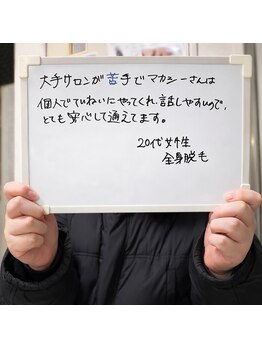 大手サロンが苦手でマカシーさんは
個人でていねいにやってくれ、話しやすいので、
とても安心して通えてます。
20代女性
全身脱毛